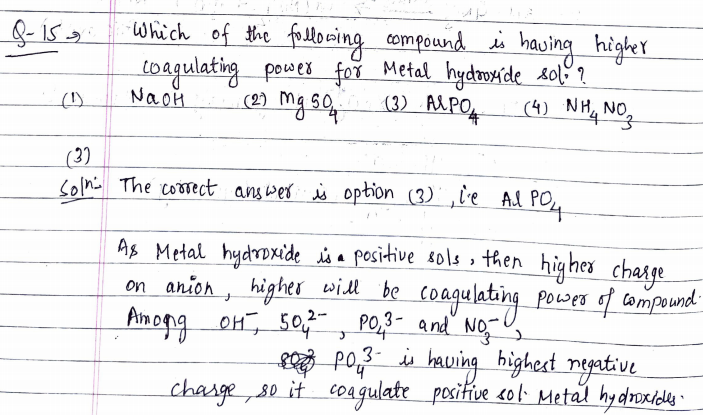 Q-15 → Which of the following compound is having higher
coagulating power for Metal hydroxide sol:?
(1) NaOH (2) MgSO₄ (3) AlPO₄ (4) NH₄NO₃
(3)
Soln:- The correct answer is option (3), i.e AlPO₄
As Metal hydroxide is a positive sols, then higher charge
on anion, higher will be coagulating power of compound.
Among OH⁻, SO₄²⁻, PO₄³⁻ and NO₃⁻,
PO₄³⁻ is having highest negative
charge, so it coagulate positive sol. Metal hydroxides.